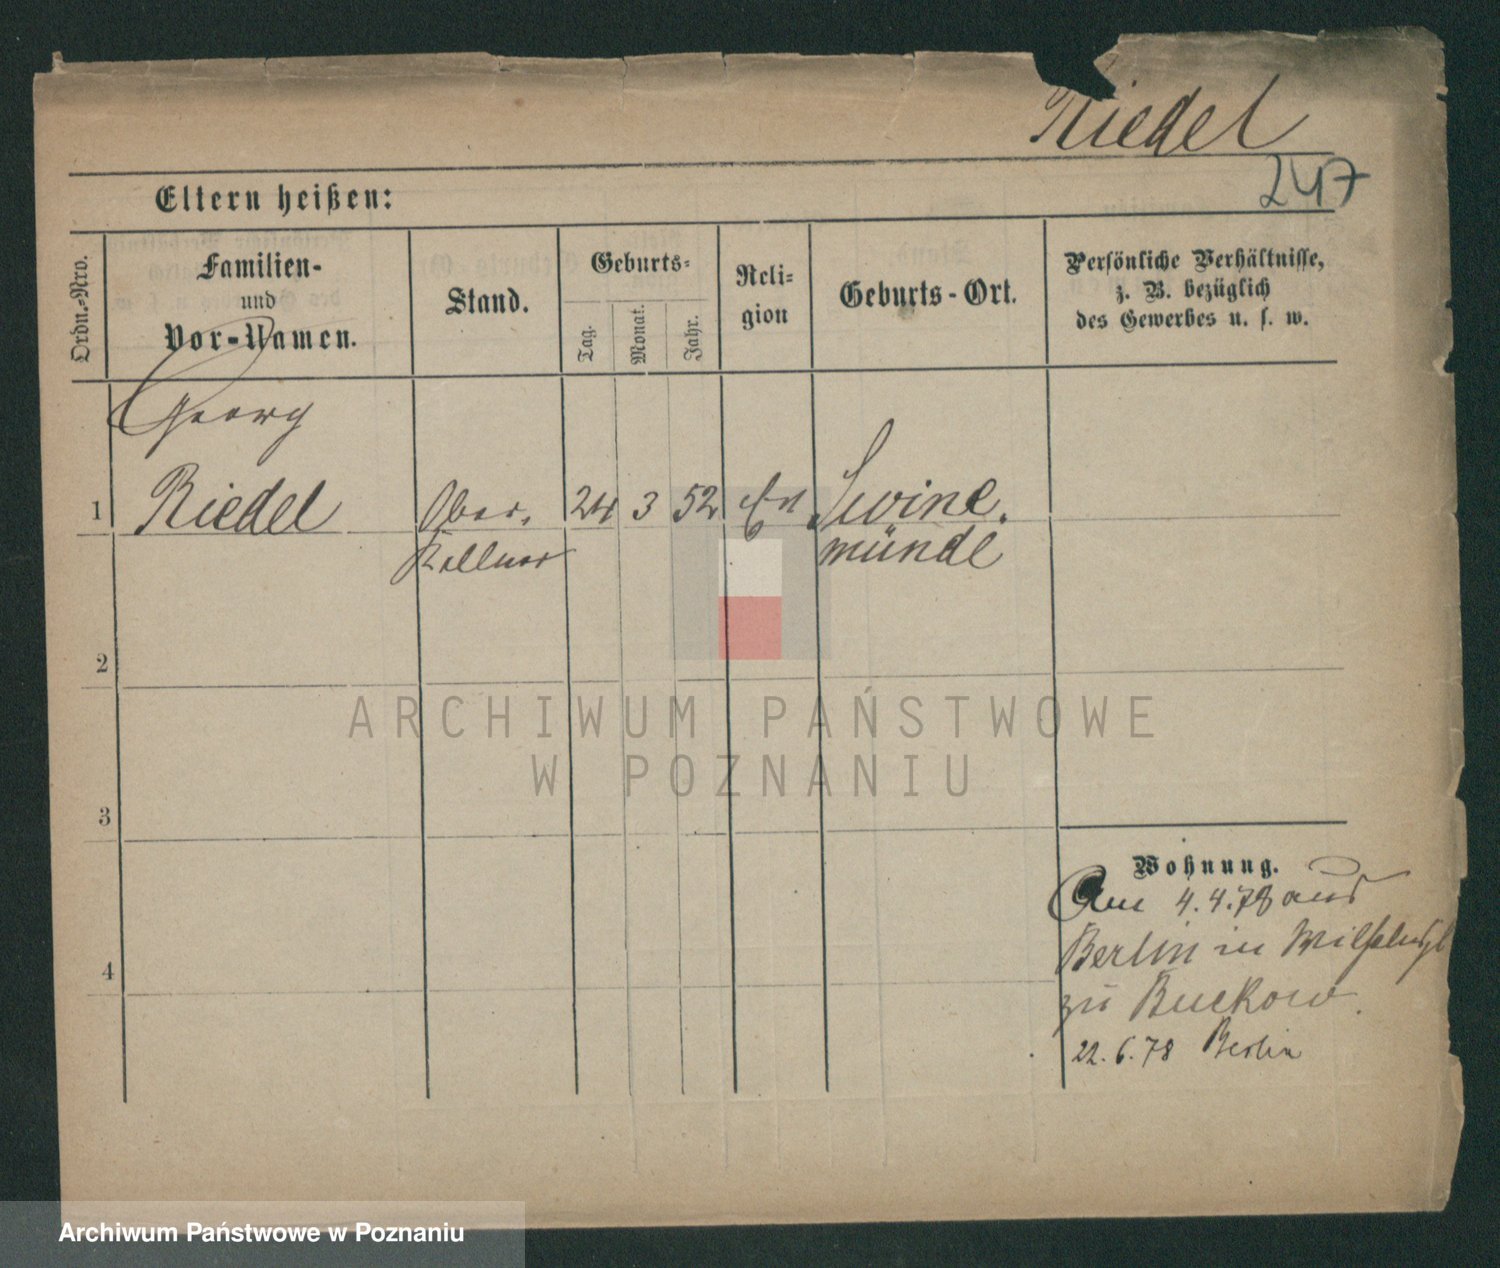 Riedel
247
Eltern heißen:
Ordn.-Nro.
Familien-
und
Vor-Namen.
Stand.
Geburts-
Tag.
Monat.
Jahr.
Reli-
gion
Geburts-Ort.
Persönliche Verhältnisse,
z. B. bezüglich
des Gewerbes u. s. w.
Georg
1 Riedel Ober- 24 3 52 Ev Swine-
Kellner münde
2
3
4
Wohnung.
Am 4.4.78 aus
Berlin in
zu Buckow.
22.6.78 Berlin
ARCHIWUM PAŃSTWOWE
W POZNANIU
Archiwum Państwowe w Poznaniu